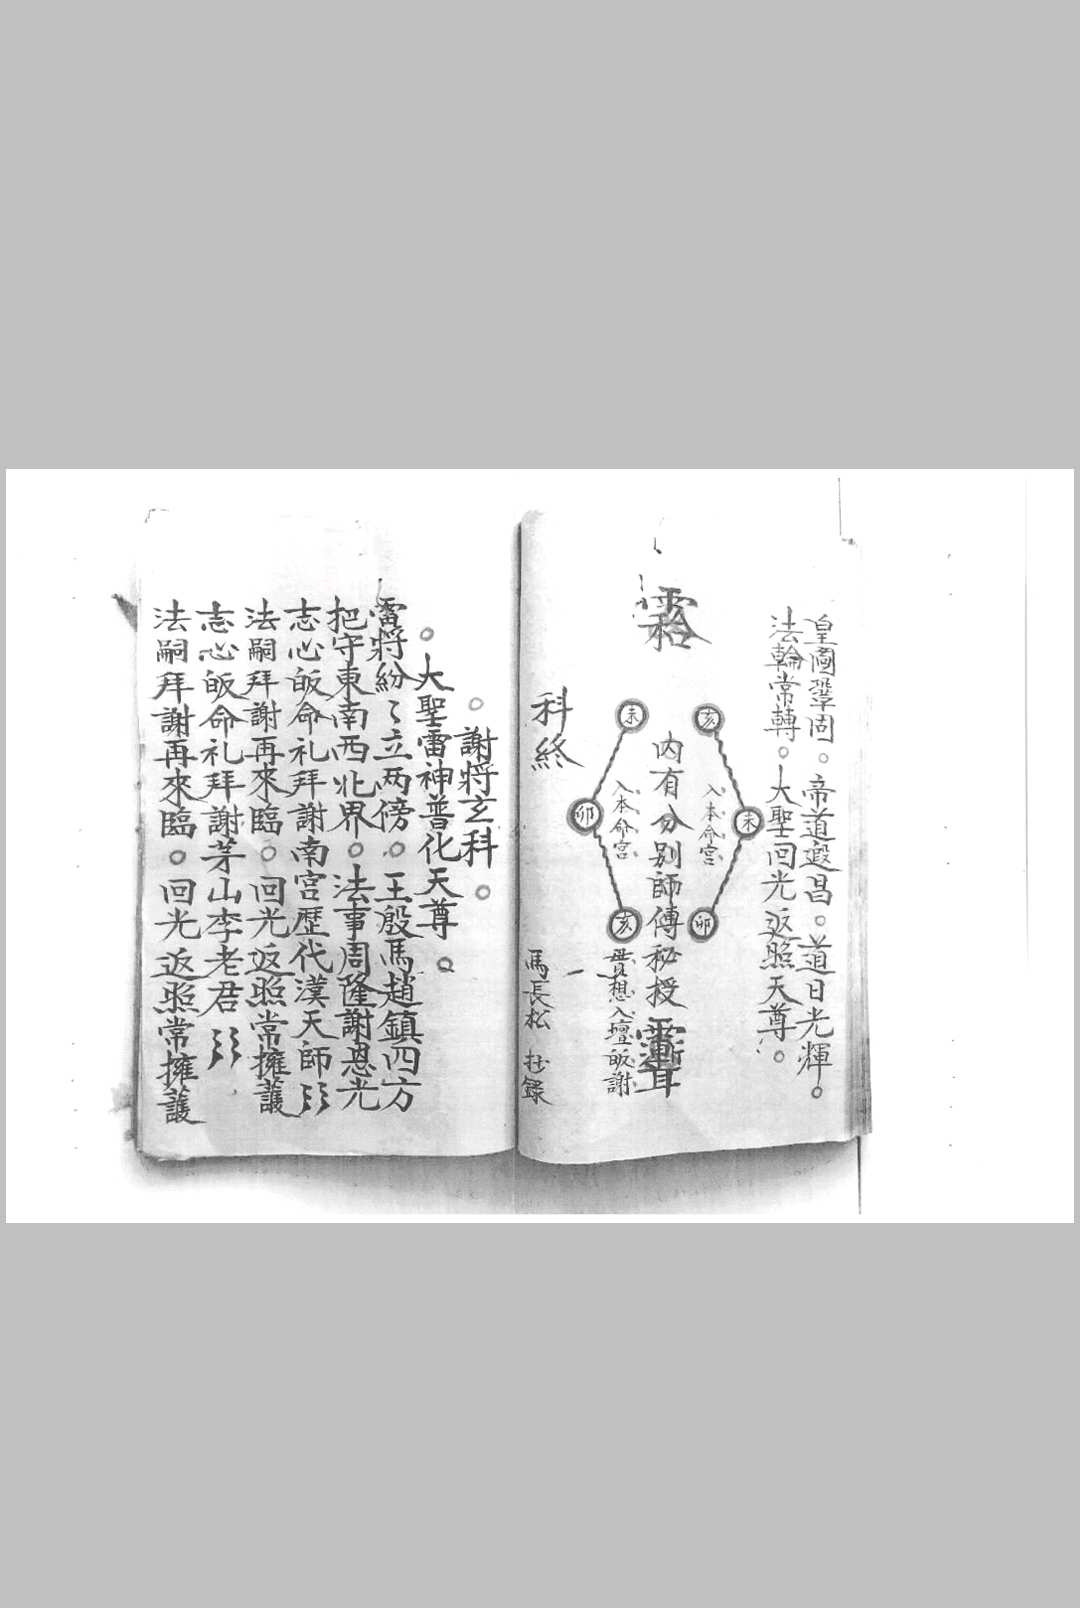 皇圖鞏固。帝道遐昌。道日光輝。
法輪常轉。大聖回光返照天尊。
亥
未
卯
入本命宫
内有分别師傅秘授
未
卯
亥
入本命宫
想入壇皈謝
科終
馬長松 抄録
。謝將玄科。
。大聖雷神普化天尊。
雷將紛〻立两傍。王殷馬趙鎮四方
把守東南西北界。法事周隆謝恩光
志心皈命礼拜謝南宫歷代漢天師〻〻
法嗣拜謝再來臨。回光返照常擁護
志心皈命礼拜謝茅山李老君〻〻
法嗣拜謝再來臨。回光返照常擁護